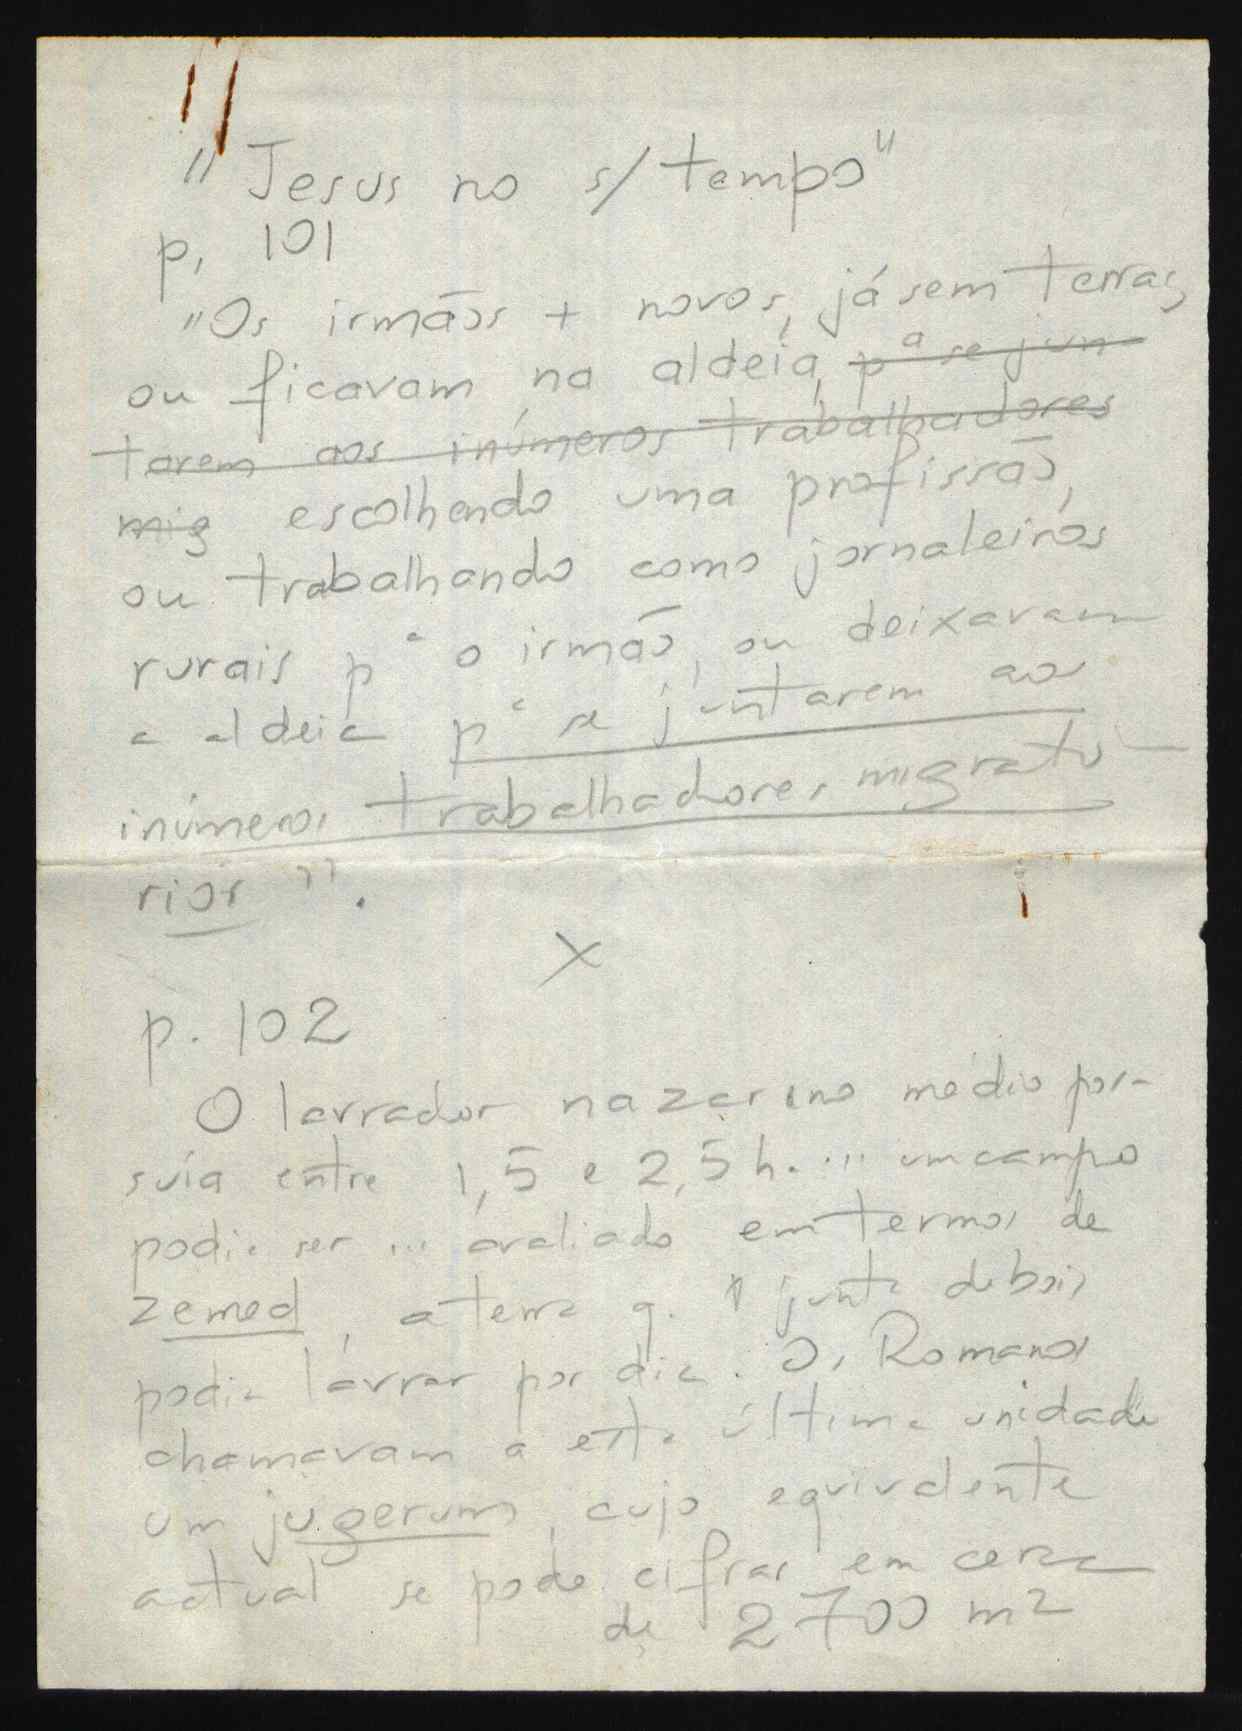 "Jesus no s/ tempo"
p. 101
"Os irmãos + novos, já sem terras,
ou ficavam na aldeia, pª se jun
tarem aos inúmeros trabalhadores
mig escolhendo uma profissão,
ou trabalhando como jornaleiros
rurais pª o irmão, ou deixavam
a aldeia pª se juntarem aos
inúmeros trabalhadores migrató-
rios".
X
p. 102
O lavrador nazareno médio pos-
suía entre 1,5 e 2,5 h. ... um campo
podia ser ... avaliado em termos de
zemed, a terra q. 1 junta de bois
podia lavrar por dia. Os Romanos
chamavam a esta última unidade
um jugerum, cujo equivalente
actual se pode cifrar em cerca
de 2700 m²